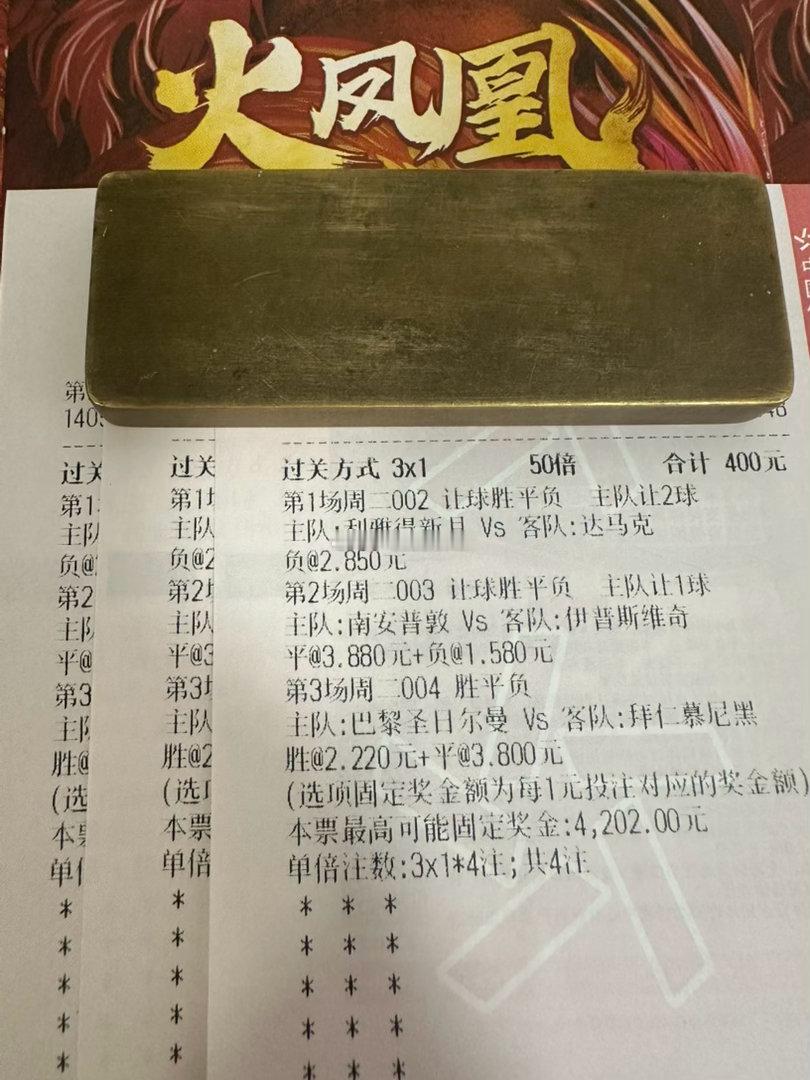 火凤凰
第
140
48
过关
第1
主队
负@2
第2
主队
平@
第3
主队
胜@
(选
本票
单倍
过关
第1场
主队
负@2
第2场
主队
平@3
第3场
主队
胜@2
(选项
本票
单倍
过关方式 3x1 50倍 合计 400元
第1场周二002 让球胜平负 主队让2球
主队:利雅得新月 Vs 客队:达马克
负@2.850元
第2场周二003 让球胜平负 主队让1球
主队:南安普敦 Vs 客队:伊普斯维奇
平@3.880元+负@1.580元
第3场周二004 胜平负
主队:巴黎圣日尔曼 Vs 客队:拜仁慕尼黑
胜@2.220元+平@3.800元
(选项固定奖金额为每1元投注对应的奖金额)
本票最高可能固定奖金:4,202.00元
单倍注数:3x1*4注;共4注
* * *
* * *
* * *
* * *
* * *